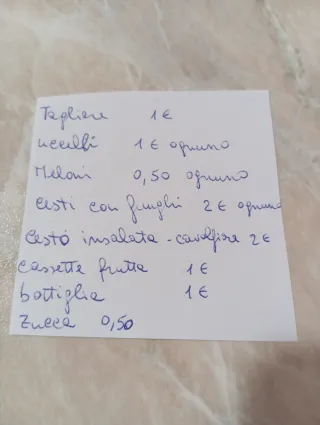 Tagliere 1 €
uccelli 1 € ognuno
Meloni 0,50 ognuno
cesti con funghi 2 € ognuno
cesto insalata - cavolfiore 2 €
cassette frutta 1 €
bottiglia 1 €
Zucca 0,50